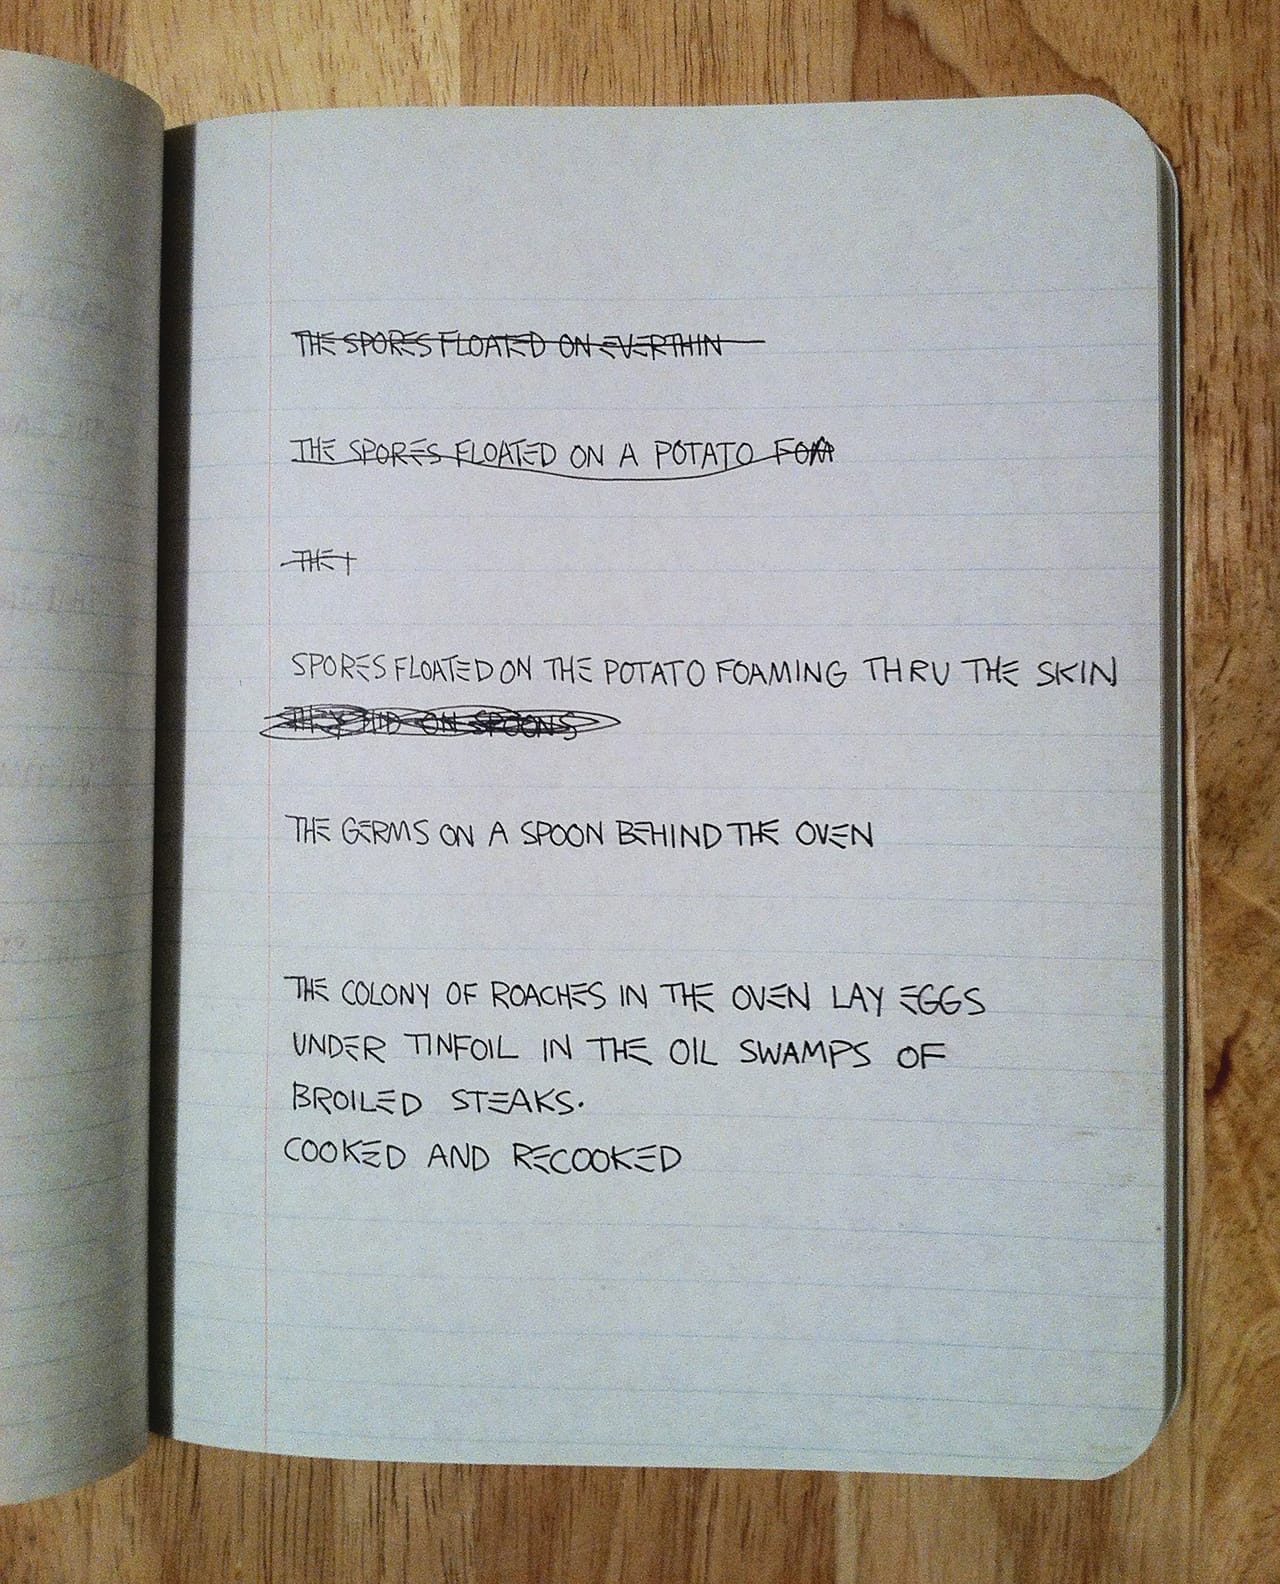 THE SPORES FLOATED ON EVERTHIN
THE SPORES FLOATED ON A POTATO FOM
THE T
SPORES FLOATED ON THE POTATO FOAMING THRU THE SKIN
THEY HID ON SPOONS
THE GERMS ON A SPOON BEHIND THE OVEN
THE COLONY OF ROACHES IN THE OVEN LAY EGGS
UNDER TINFOIL IN THE OIL SWAMPS OF
BROILED STEAKS.
COOKED AND RECOOKED